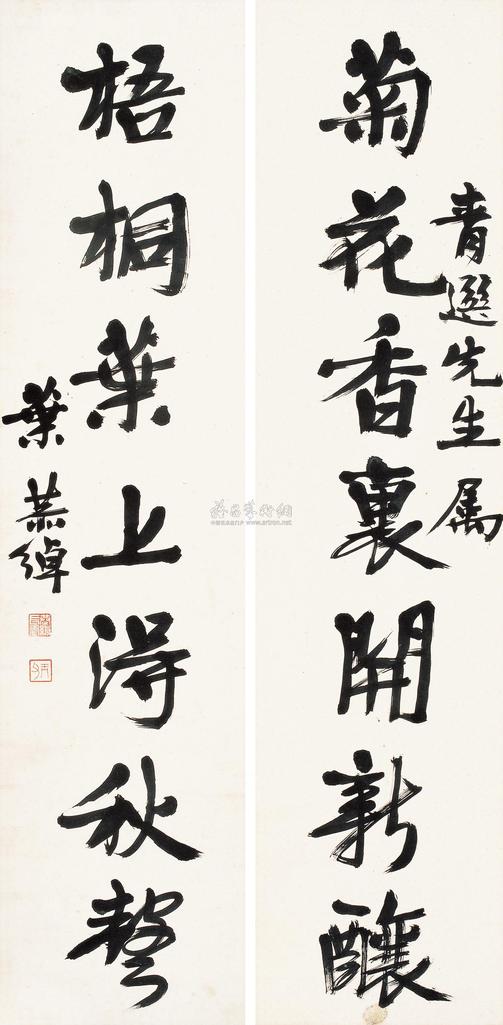 青選先生属
菊花香裏開新釀
梧桐葉上得秋聲
葉恭綽
雅昌藝術網
www.artron.net